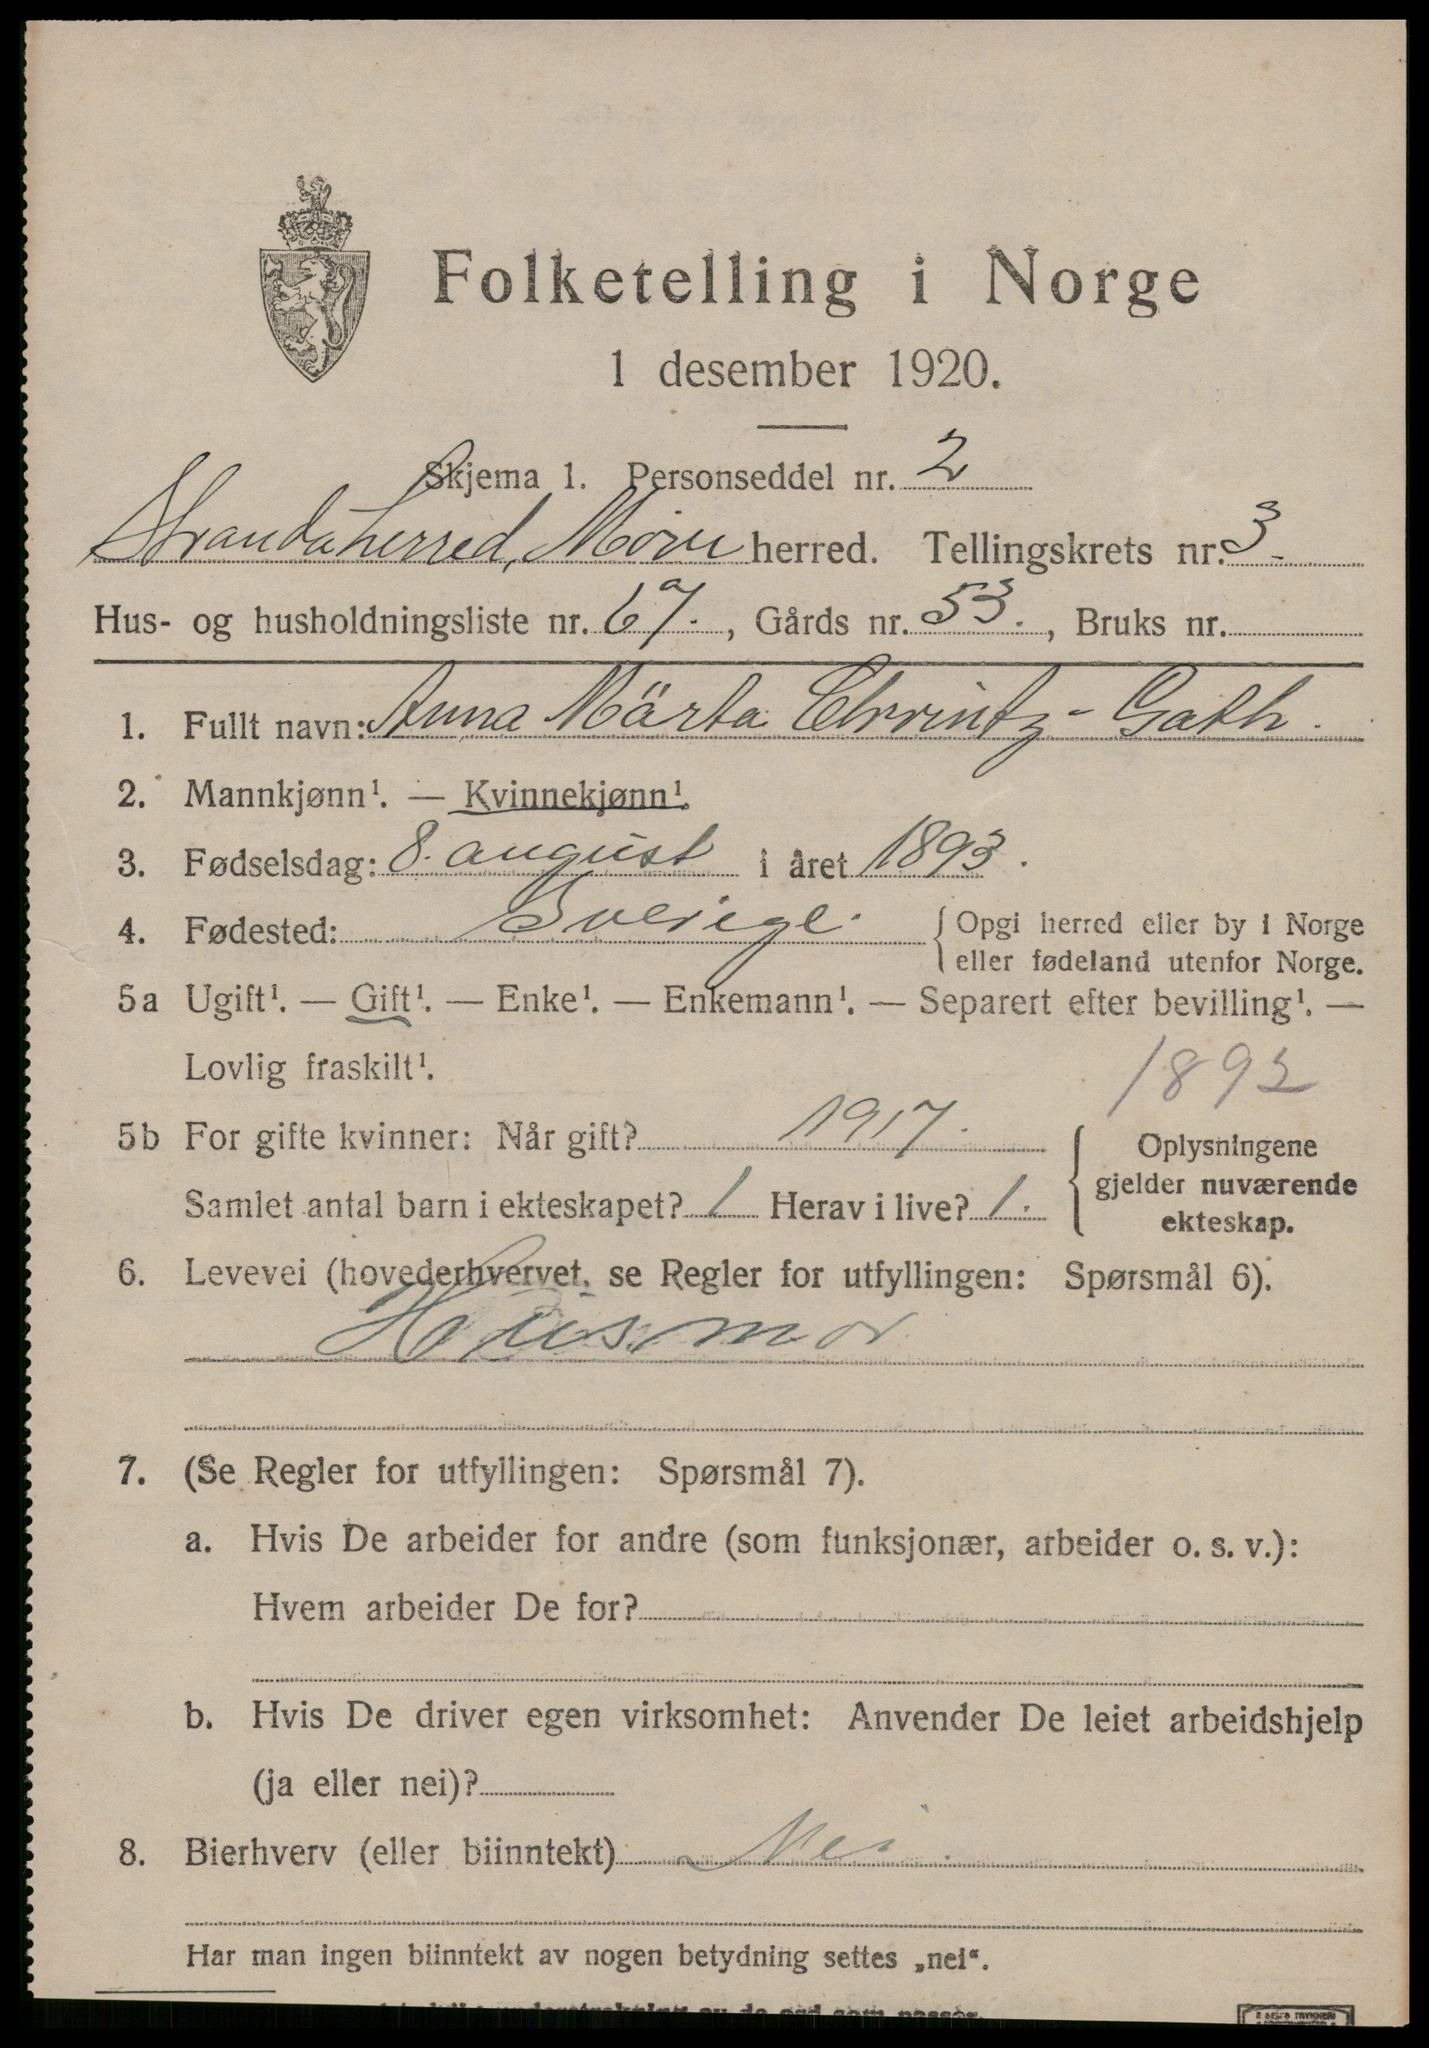 Folketelling i Norge
1 desember 1920.
Skjema 1. Personseddel nr. 2
Strandaherred, Møre herred. Tellingskrets nr. 3.
Hus- og husholdningsliste nr. 67., Gårds nr. 53., Bruks nr.
1. Fullt navn: Anna Märta Chrintz-Gath.
2. Mannkjønn¹. — Kvinnekjønn¹.
3. Fødselsdag: 8. august i året 1893.
4. Fødested: Sverige. { Opgi herred eller by i Norge
eller fødeland utenfor Norge.
5a Ugift¹. — Gift¹. — Enke¹. — Enkemann¹. — Separert efter bevilling¹. —
Lovlig fraskilt¹.
1893
5b For gifte kvinner: Når gift? 1917.
Samlet antal barn i ekteskapet? 1 Herav i live? 1.
{ Oplysningene
gjelder nuværende
ekteskap.
6. Levevei (hovederhvervet, se Regler for utfyllingen: Spørsmål 6).
Husmor
7. (Se Regler for utfyllingen: Spørsmål 7).
a. Hvis De arbeider for andre (som funksjonær, arbeider o. s. v.):
Hvem arbeider De for?
b. Hvis De driver egen virksomhet: Anvender De leiet arbeidshjelp
(ja eller nei)?
8. Bierhverv (eller biinntekt) Nei.
Har man ingen biinntekt av nogen betydning settes „nei“.